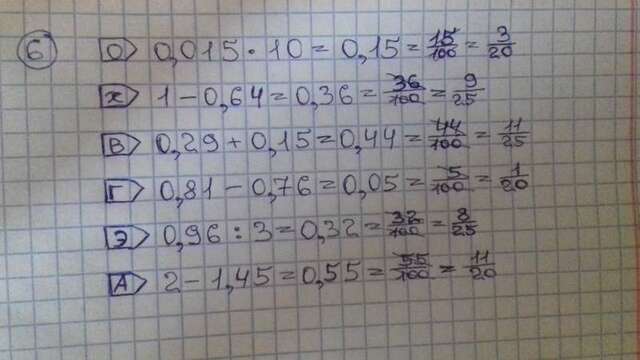 6
О 0,015 · 10 = 0,15 = 15/100 = 3/20
Ж 1 - 0,64 = 0,36 = 36/100 = 9/25
В 0,29 + 0,15 = 0,44 = 44/100 = 11/25
Г 0,81 - 0,76 = 0,05 = 5/100 = 1/20
Э 0,96 : 3 = 0,32 = 32/100 = 8/25
А 2 - 1,45 = 0,55 = 55/100 = 11/20